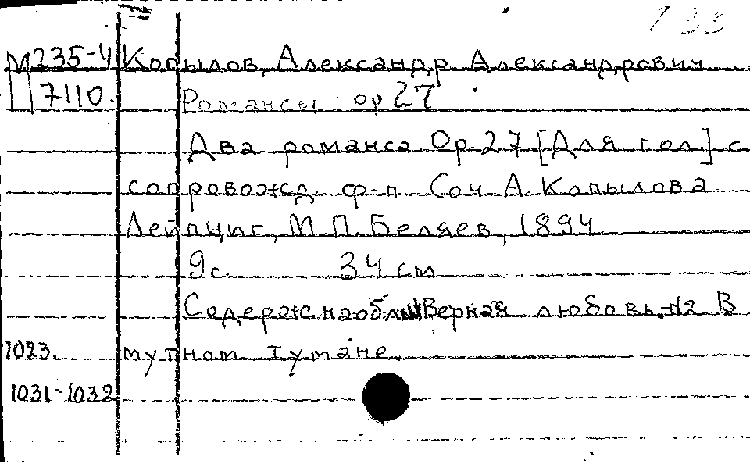 М235-4 Копылов, Александр Александрович
7110. Романсы ор 27
Два романса Ор. 27 [Для гол] с
сопровожд. ф-п. Соч. А. Копылова
Лейпциг, М. П. Беляев, 1894
9 с. 34 см
Содерж на обл №1 Верная любовь. №2 В
1023. мутном тумане.
1031-1032